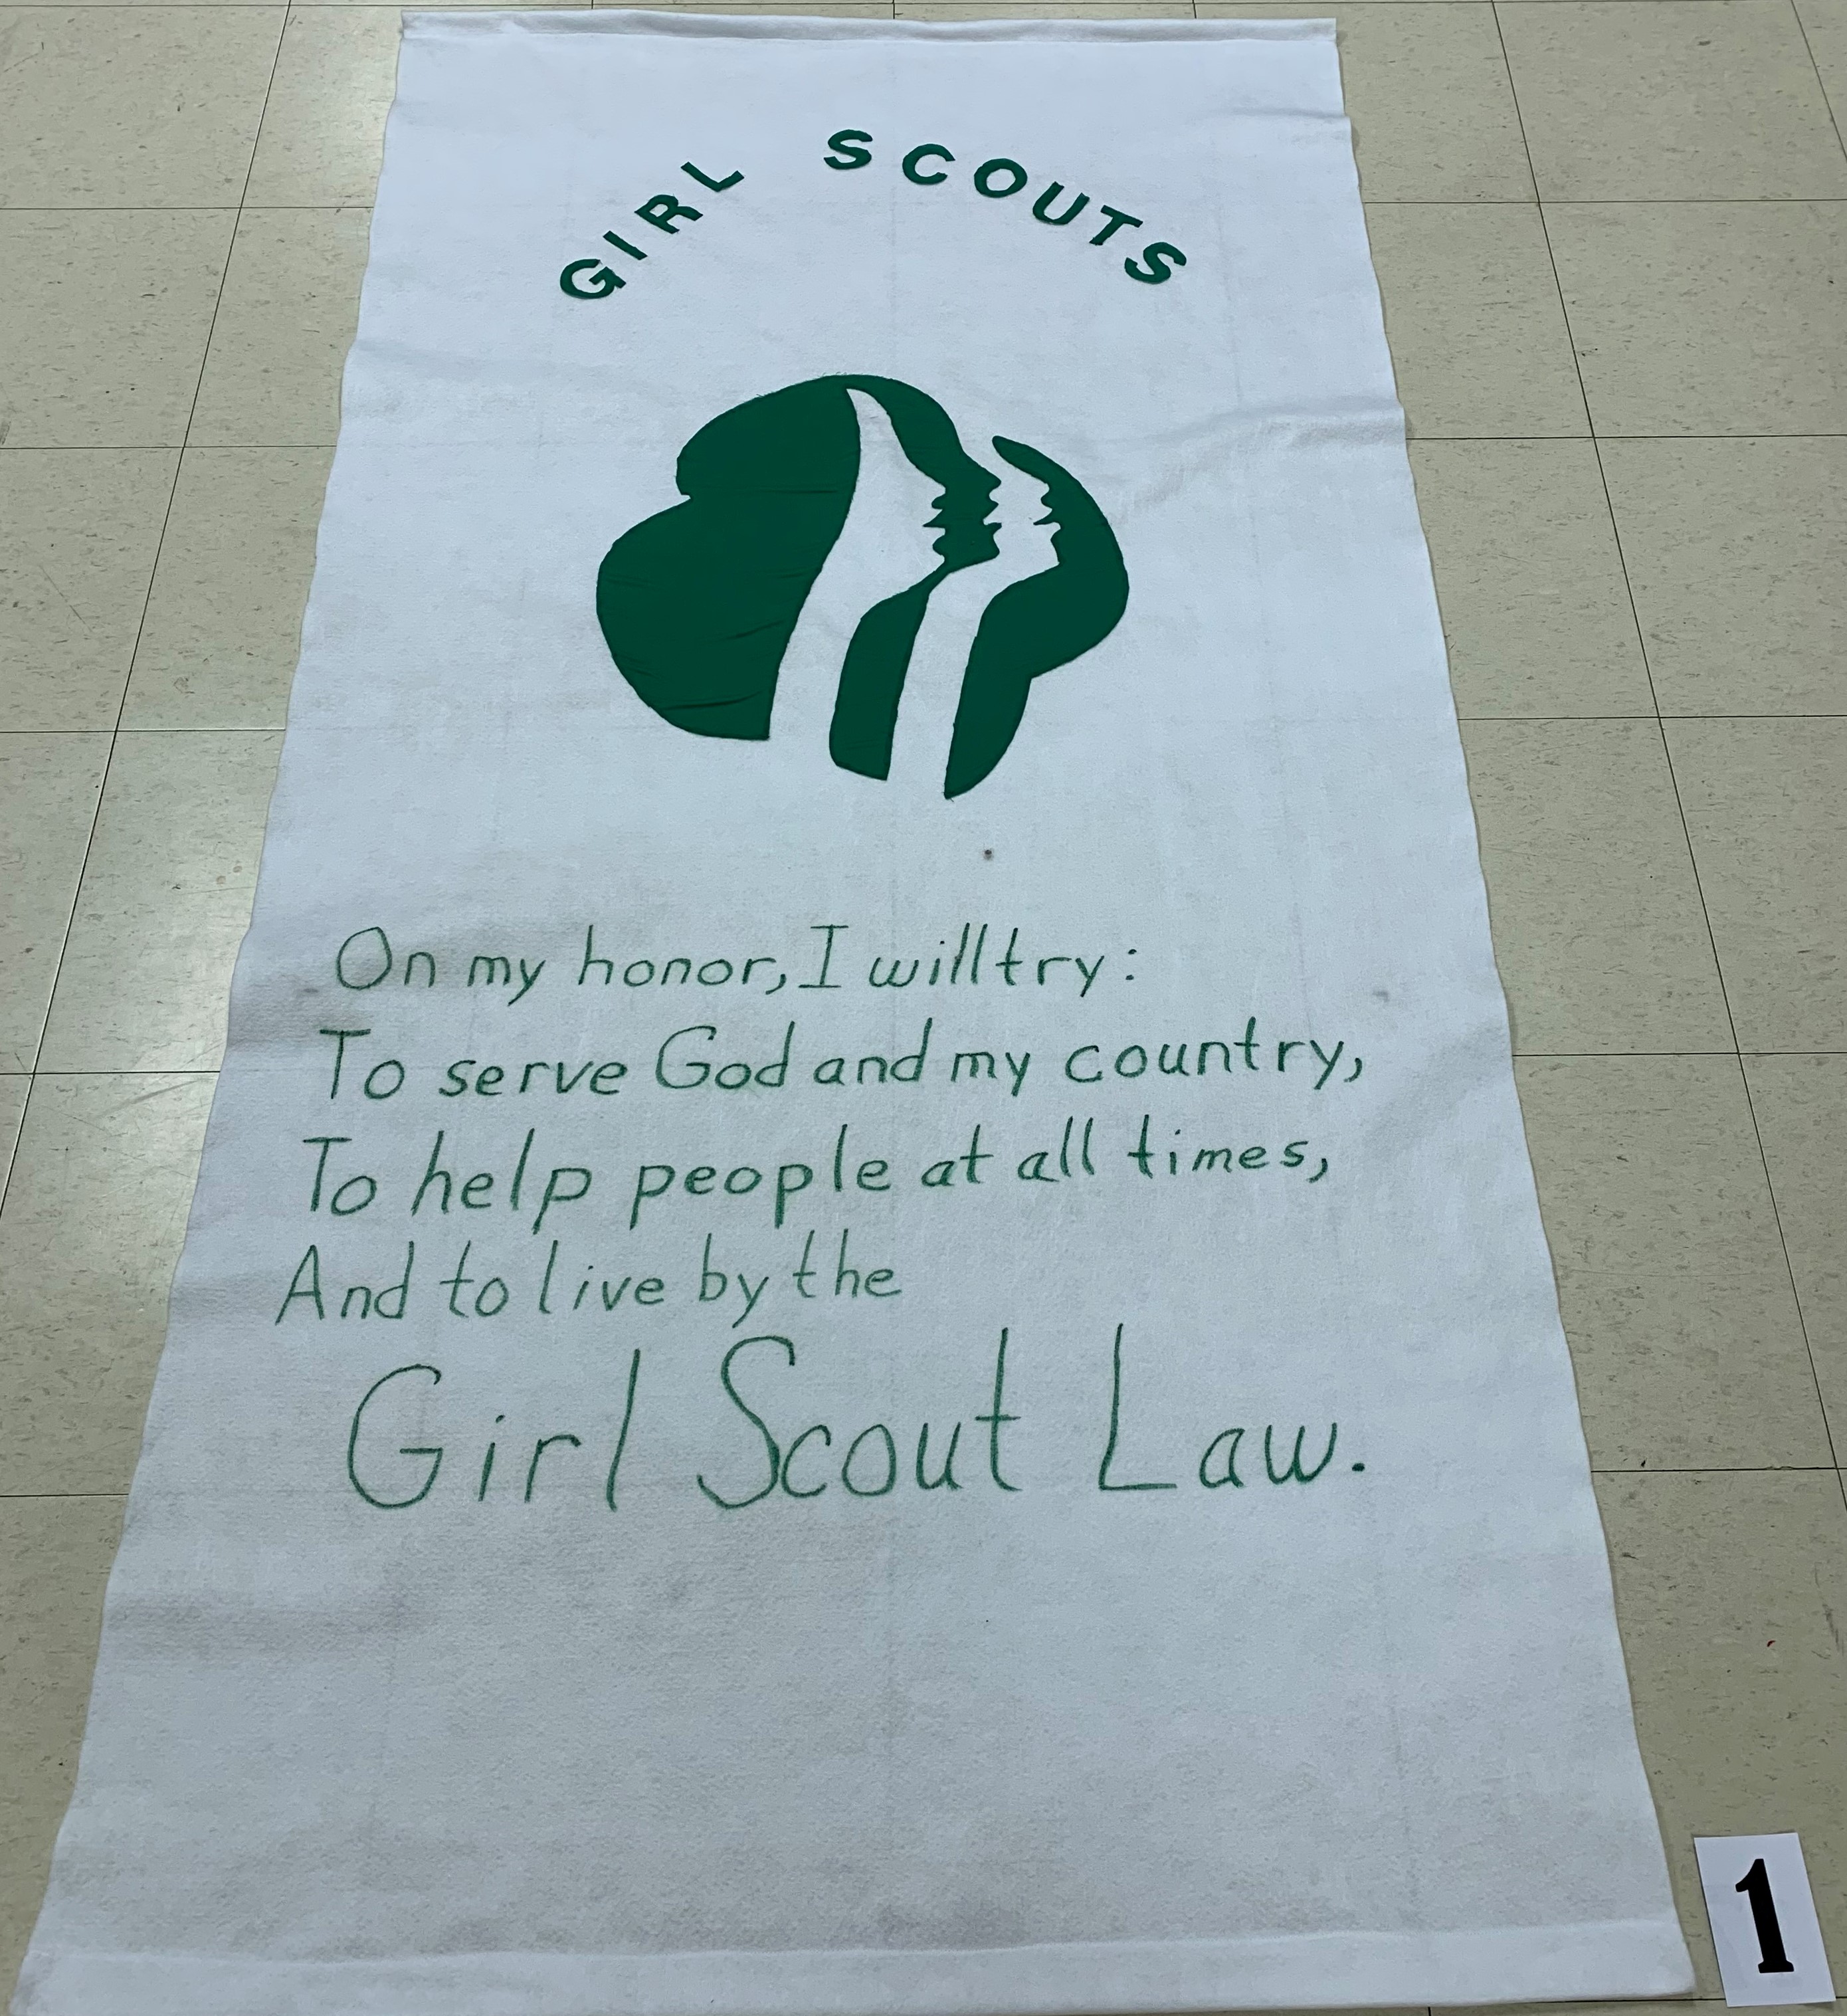 GIRL SCOUTS
On my honor, I will try:
To serve God and my country,
To help people at all times,
And to live by the
Girl Scout Law.
1